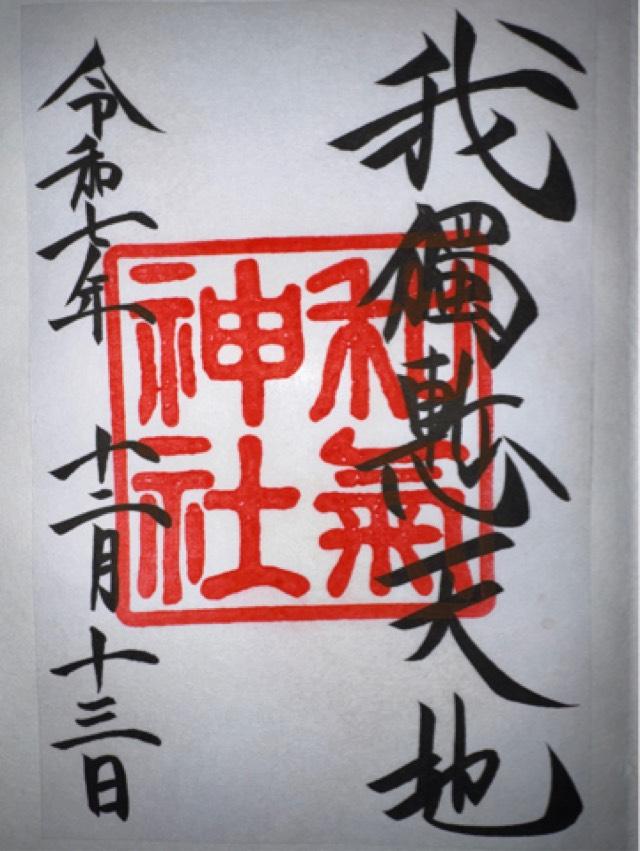 我獨慙天地
和氣
神社
令和七年 十二月 十三日